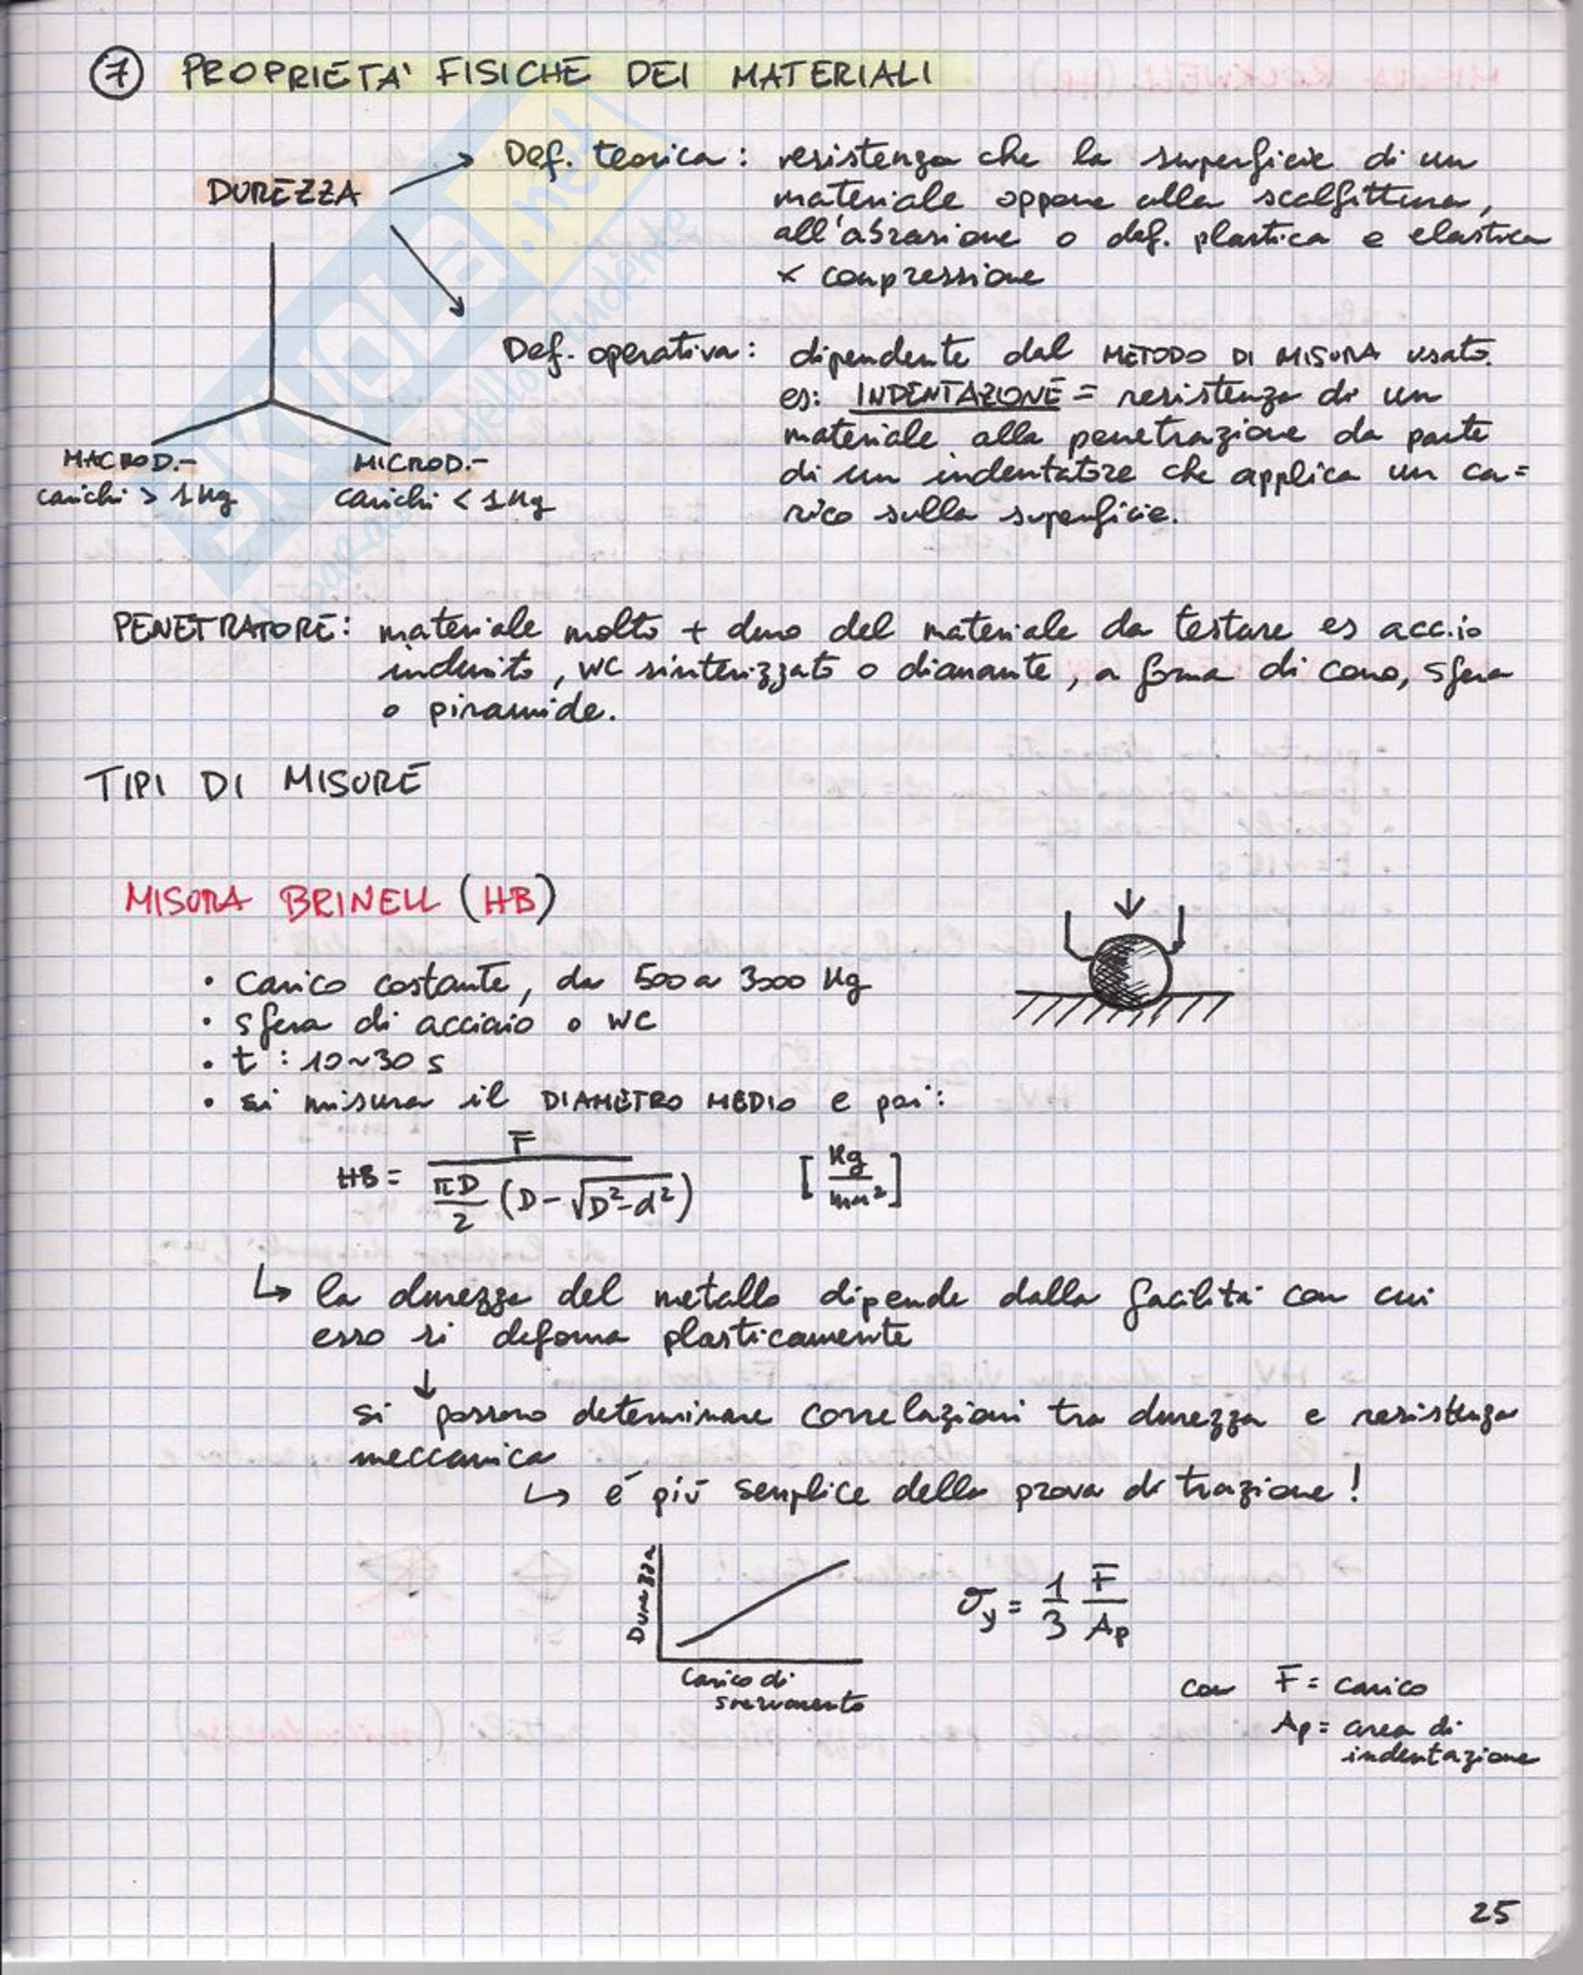 7 PROPRIETA' FISICHE DEI MATERIALI
DUREZZA
Def. teorica: resistenza che la superficie di un
materiale oppone alla scalfittura,
all'abrasione o def. plastica e elastica
x compressione
Def. operativa: dipendente dal METODO DI MISURA usato.
es: INDENTAZIONE = resistenza di un
materiale alla penetrazione da parte
di un indentatore che applica un ca=
rico sulla superficie.
MACROD.-
carichi > 1 Kg
MICROD.-
carichi < 1 Kg
PENETRATORE: materiale molto + duro del materiale da testare es acc.io
indurito, WC sinterizzato o diamante, a forma di cono, sfera
o piramide.
TIPI DI MISURE
MISURA BRINELL (HB)
• Carico costante, da 500 a 3000 Kg
• sfera di acciaio o WC
• t : 10~30 s
• si misura il DIAMETRO MEDIO e poi:
HB = F / (πD/2 (D - √D²-d²)) [Kg/mm²]
↳ la durezza del metallo dipende dalla facilità con cui
esso si deforma plasticamente
↓
si possono determinare correlazioni tra durezza e resistenza
meccanica
↳ é più semplice della prova di trazione!
Durezza
Carico di
snervamento
σy = 1/3 F/Ap
con F = carico
Ap = area di
indentazione
25